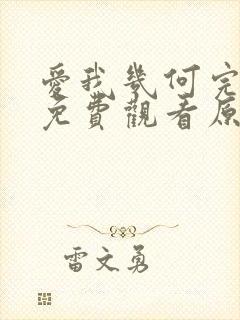 愛我幾何完
免費觀看原
雷文勇